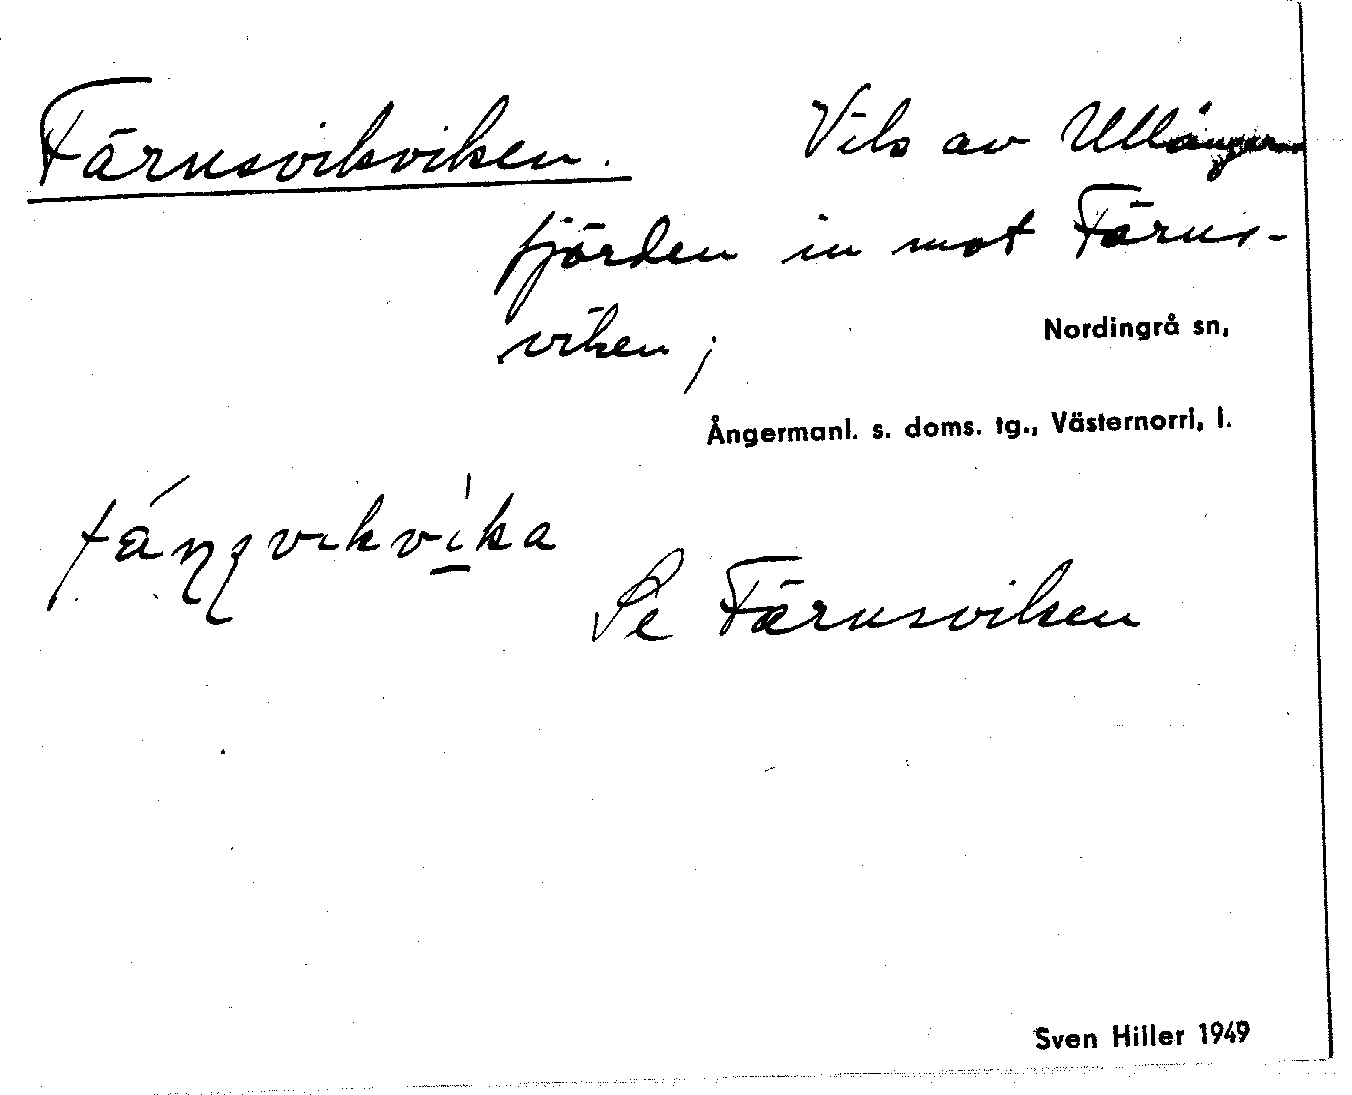 Färnsvikviken. Vik av Ullånger
fjörden in mot Färns-
viken;
Nordingrå sn,
Ångermanl. s. doms. tg., Västernorrl. l.
Se Färnsviken
Sven Hiller 1949